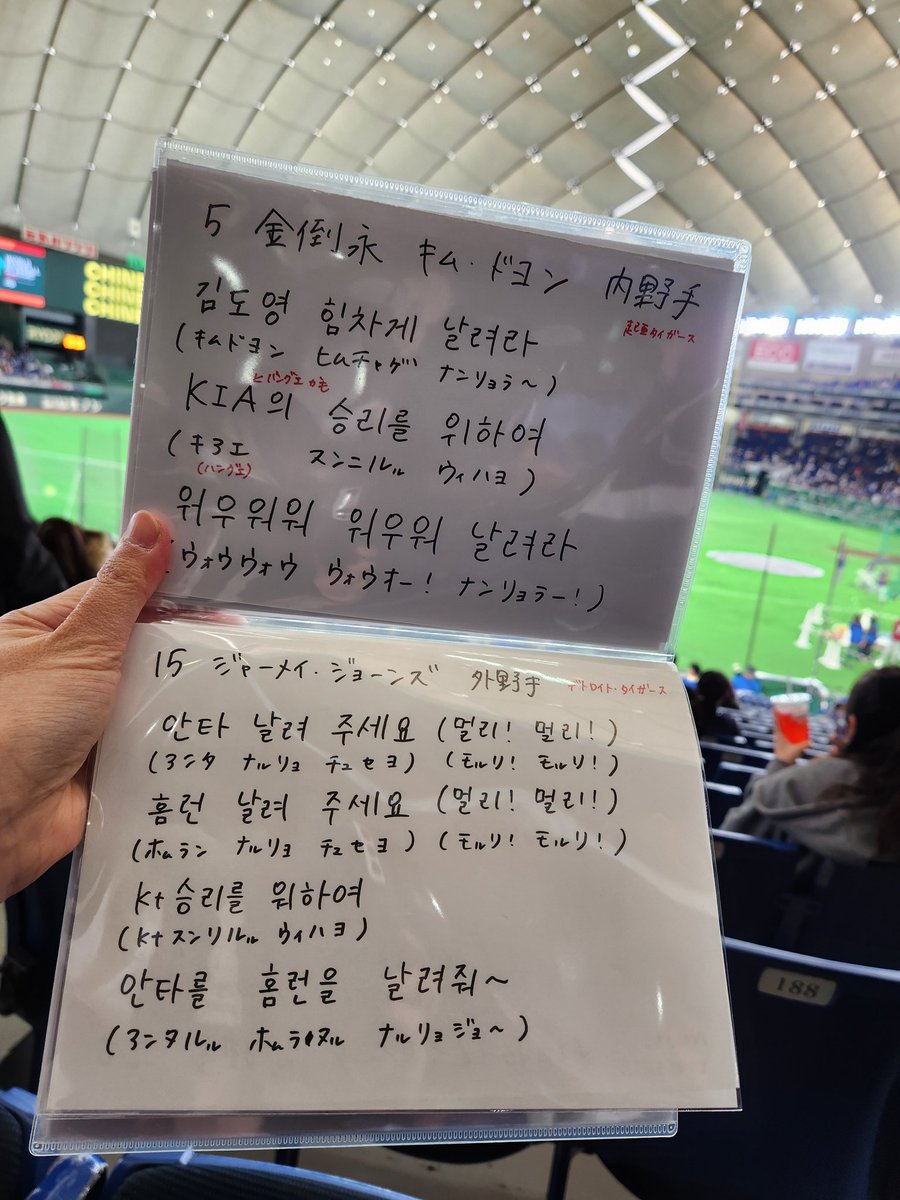 5 金倒永 キム・ドヨン 内野手
起亜タイガース
김도영 힘차게 날려라
(キムドヨン ヒムチャゲ ナンリョラ〜)
KIA의 승리를 위하여
(キアエ スンニルル ウィハヨ)
(ハングエ)
워우워워 워우워 날려라
(ウォウウォウ ウォウオー! ナンリョラー!)
15 ジャーメイ・ジョーンズ 外野手 デトロイト・タイガース
안타 날려 주세요 (멀리! 멀리!)
(アンタ ナルリョ チュセヨ) (モルリ! モルリ!)
홈런 날려 주세요 (멀리! 멀리!)
(ホムラン ナルリョ チュセヨ) (モルリ! モルリ!)
kt 승리를 위하여
(kt スンリルル ウィハヨ)
안타를 홈런을 날려줘~
(アンタルル ホムラヌル ナルリョジョ〜)
188